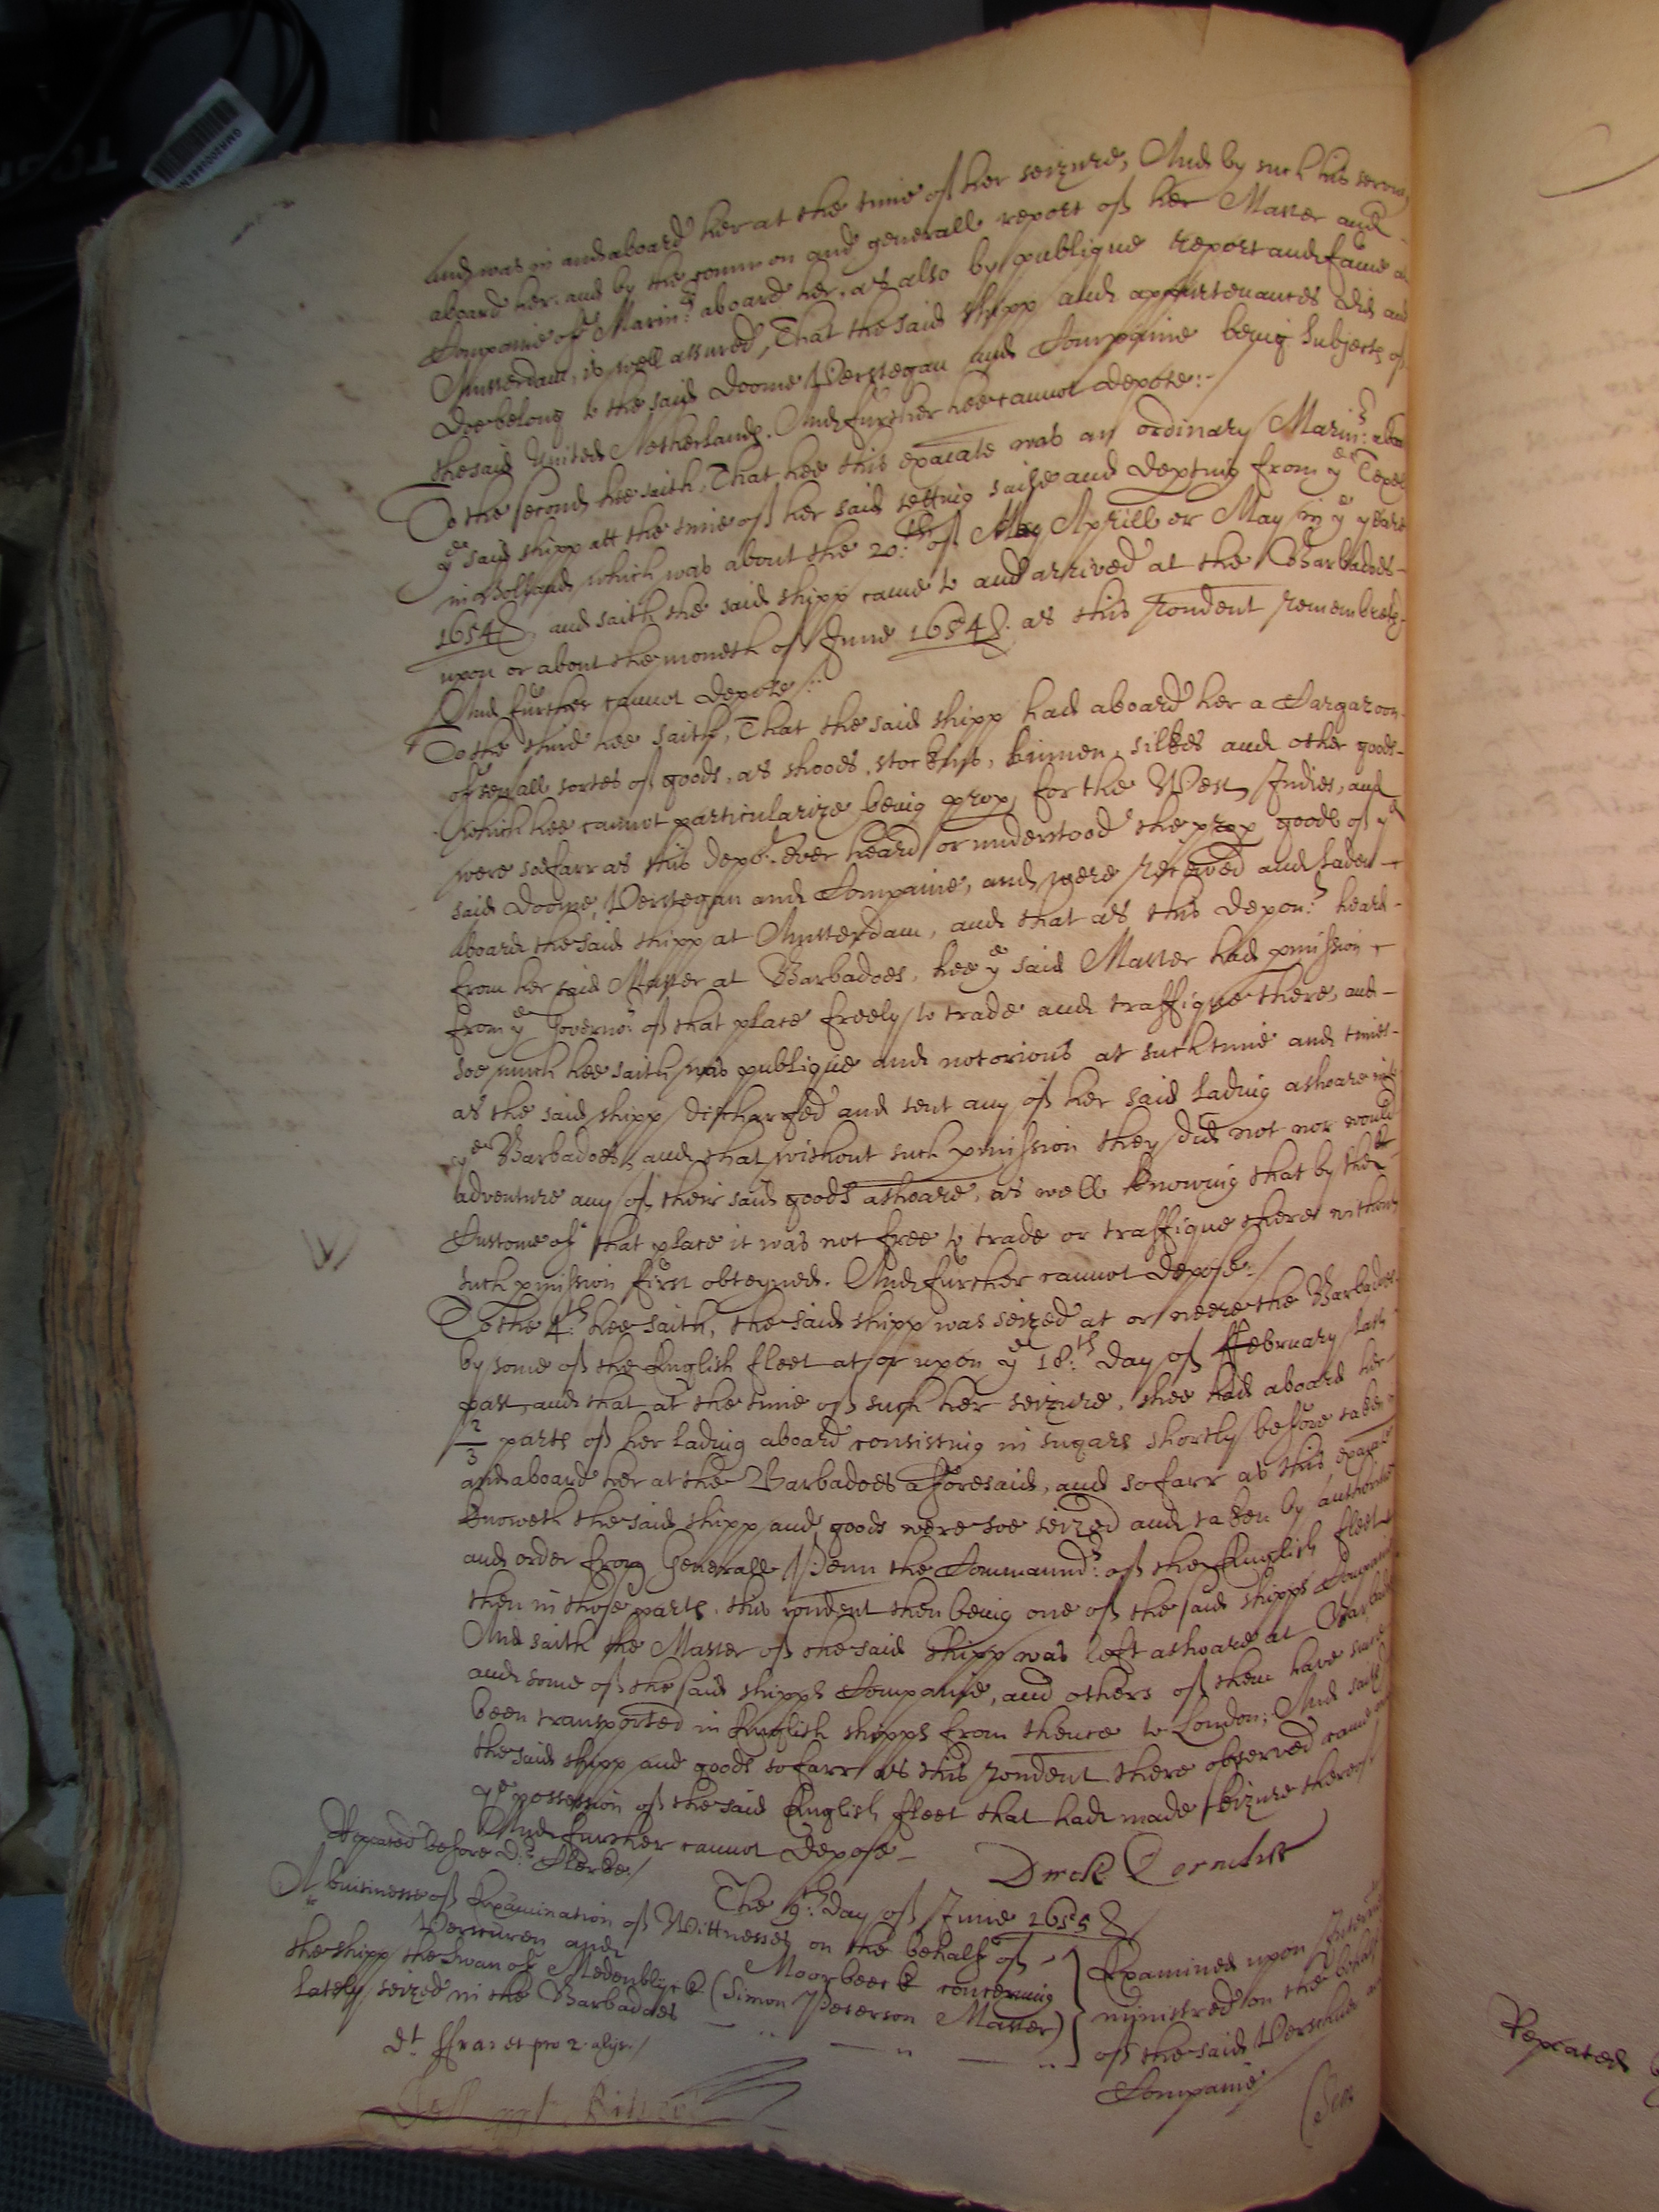 and was in and aboard her at the time of her seizure, And by such his
aboard her, and by the common and generall report of her Master and
Companie of Marin:rs aboard her, as also by publique report and fame at
Amsterdam, is well assured, That the said shipp and appurtenances did and
doe belong to the said Doome Verstegan and Companie being Subjects of
the said United Netherlands. And further hee cannot depose:-
To the second hee saith, That hee this exaiate was an ordinary Marin:r aboa
ye said shipp att the time of her said setting saile and depting from ye Texel
in Holland, which was about the 20:th of May Aprill or May in ye yeare
1654, and saith the said shipp came to and arrived at the Barbados-
upon or about the moneth of June 1654. as this rondent remembreth.
And further cannot depose /:
To the third hee saith, That the said shipp had aboard her a Cargazoon
of seuall sortes of goods, as shooes, stockins, linnen, silkes and other goods-
which hee cannot particularize being prop for the West Indies, and
were soe farr as this depo:t ever heard or understood the prop goods of ye
said Doome, Verstegan and Companie, and were received and laden
aboard the said shipp at Amsterdam, and that as this depon:t heard-
from her said Master at Barbadoes, hee ye said Master had pmission
from ye Governo:r of that place freely to trade and traffique there, and-
soe much hee saith was publique and notorious at such time and times-
as the said shipp discharged and sent any of her said lading ashoare
ye Barbadoes, and that without such pmission they did not nor would
adventure any of their said goods ashoare, as well knowing that by the
Custome of that place it was not free to trade or traffique there without
such pmission first obteyned. And further cannot depose./
To the 4:th hee saith, the said shipp was seized at or neere the Barbados
by some of the English fleet at or upon ye 18:th day of ffebruary last
past, and that at the time of such her seizure, shee had aboard her-
2/3 parts of her lading aboard consisting in sugars shortly before taken
and aboard her at the Barbadoes aforesaid, and so farr as this exaiate
knoweth the said shipp and goods were soe seized and taken by authoritie
and order from Generall Penn the Command:r of the English fleet
then in those parts, this rondent then being one of the said shipps Companie
And saith the Master of the said shipp was left ashoare at Barbados
and some of the said shipps Companie, and others of them have since
been transported in English shipps from thence to London; And saith
the said shipp and goods so farr as this rondent there observed came
ye possession of the said English fleet that had made seizure thereof
And further cannot depose-
Repeated before D:r Clerke./
Dirck Cornelise
The 9:th day of June 1655
A buisinesse of Examination of Wittnesses on the behalf of
Verscuren and Moorbeeck concerning
the shipp the Swan of Medenblick (Simon Peterson Master)
lately seized in the Barbadoes
Examined upon Interr
ministred on the behalf
of the said Verscuren
Companie
dt ffran et pro 2. alys. /
Repeated